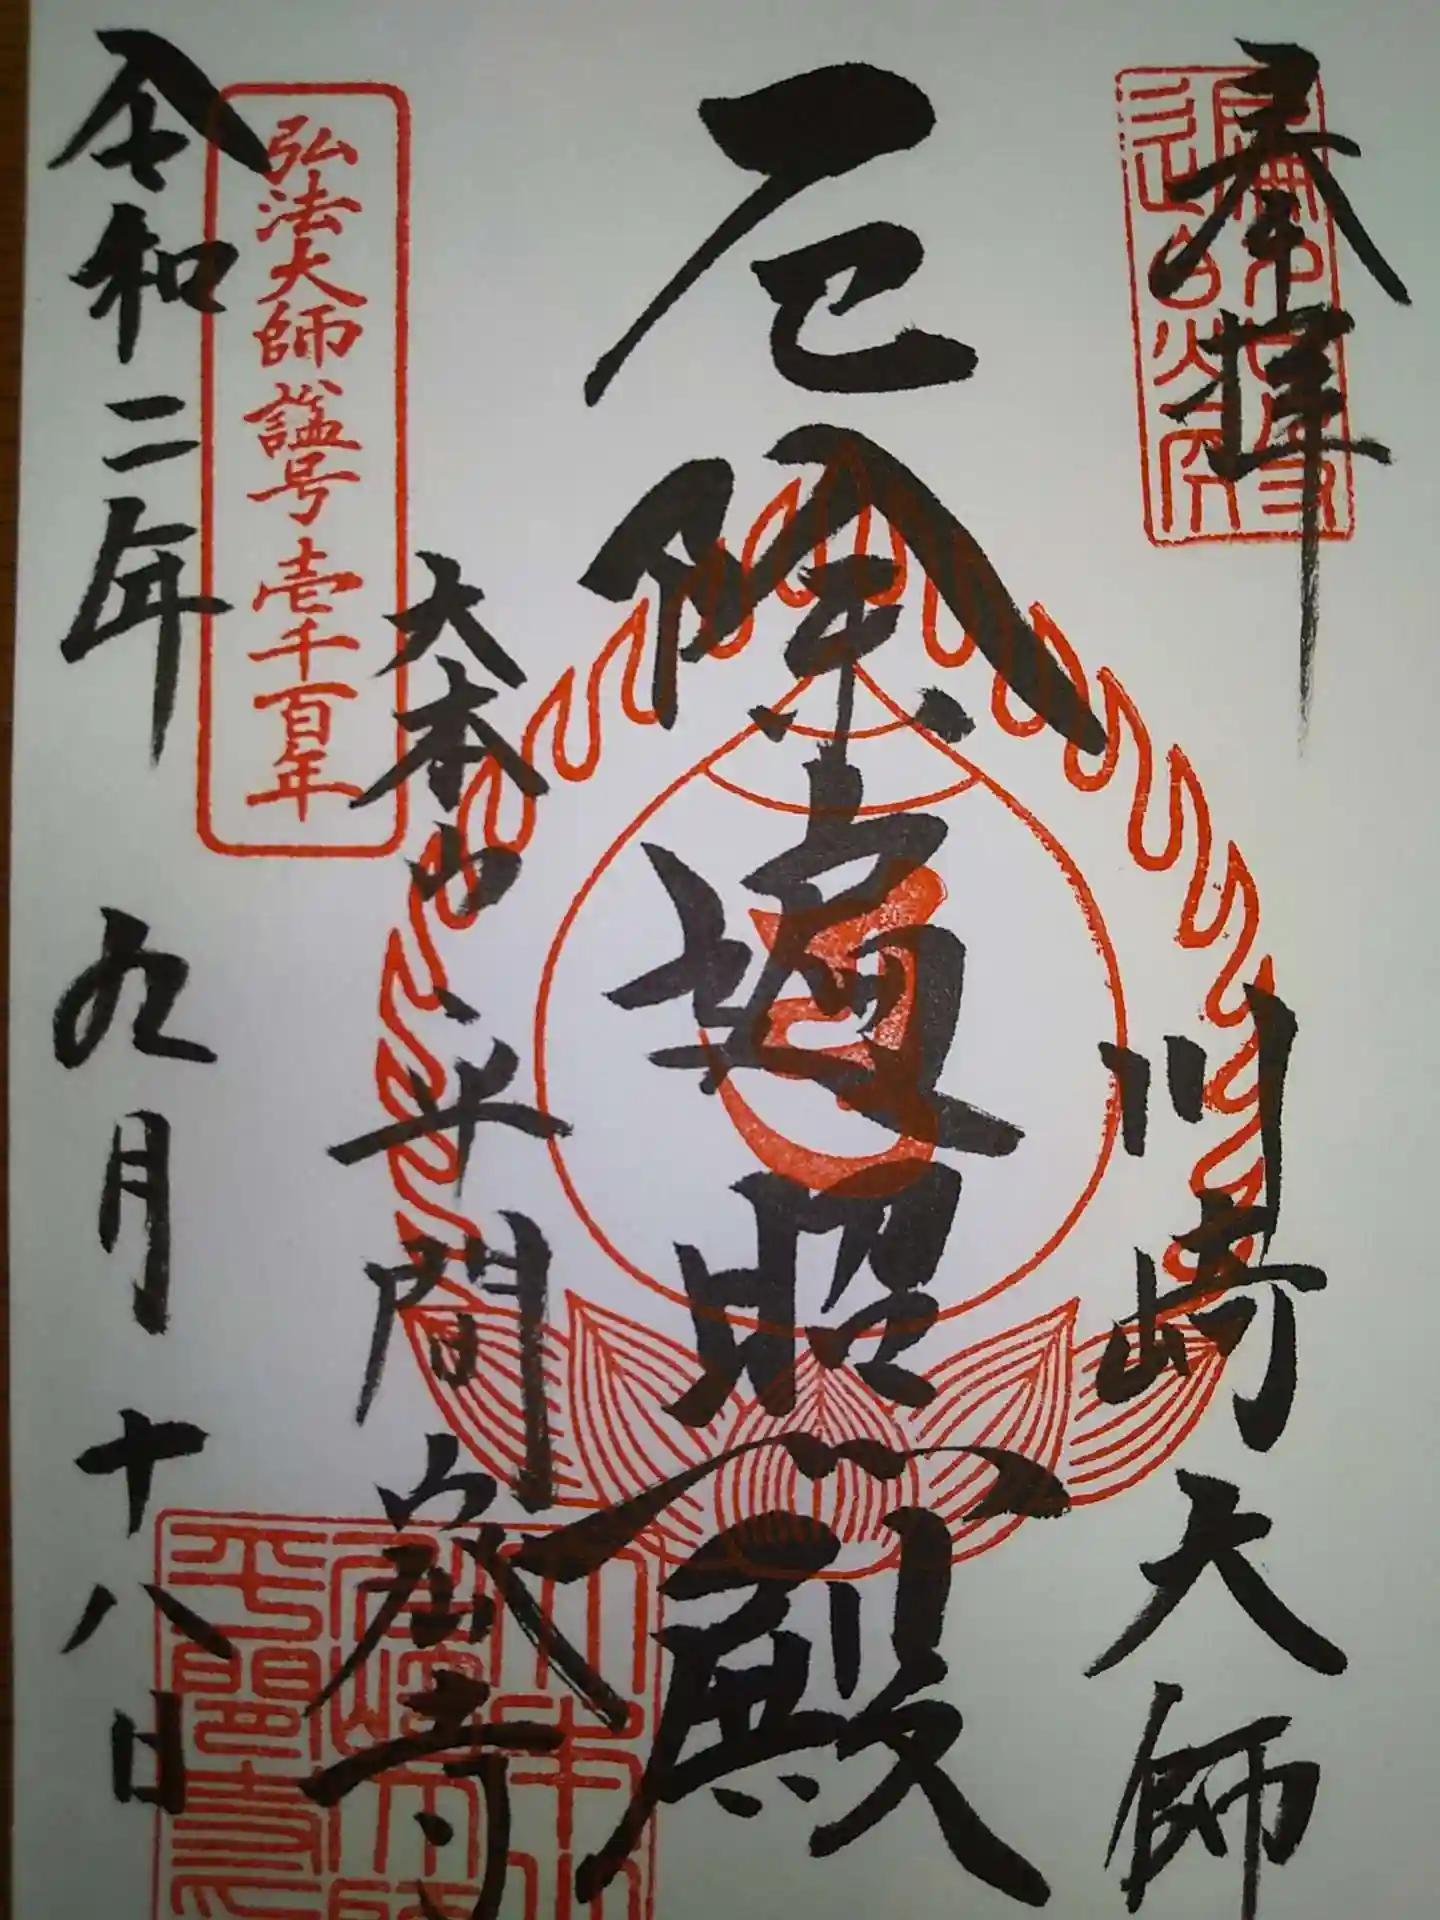 奉拝
川崎大師
厄除遍照殿
大本山
平間寺
弘法大師諡号壱千百年
令和二年
九月十八日